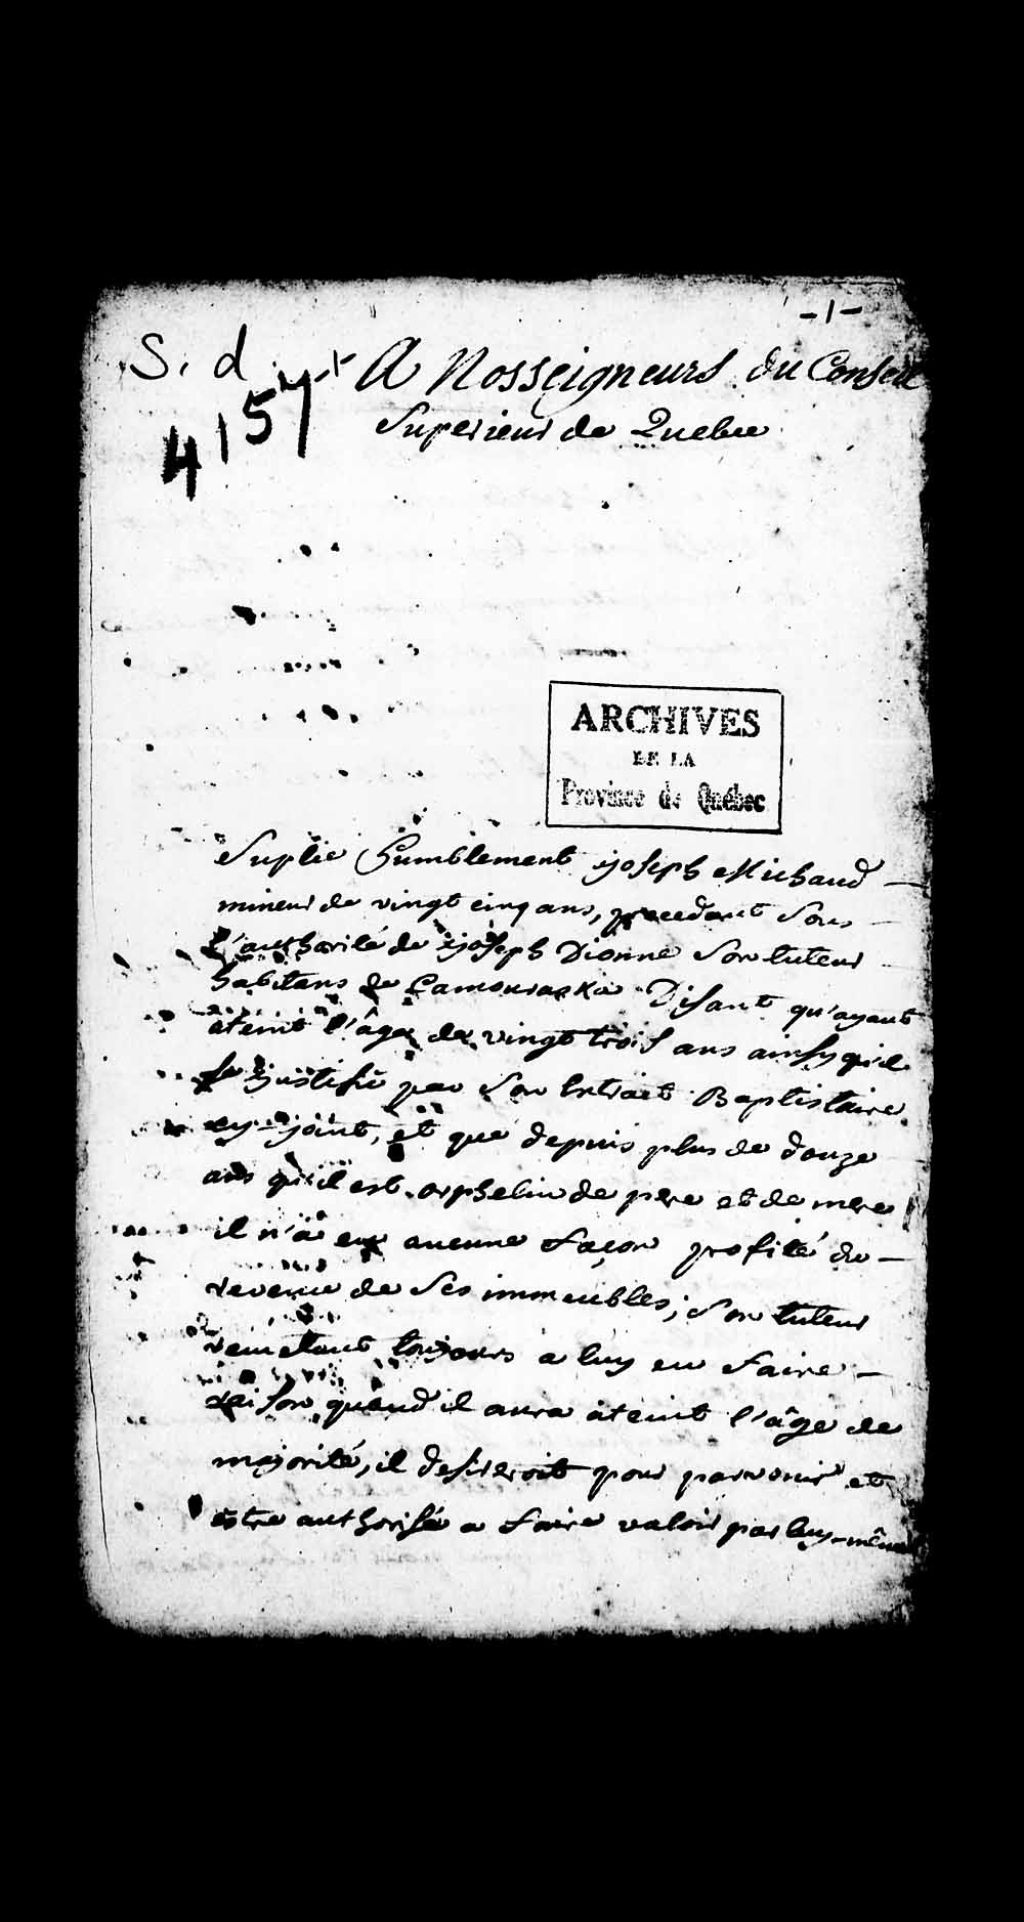 -1-
S. d.
4157
A Nosseigneurs du Conseil
Superieur de Quebec
ARCHIVES
DE LA
Province de Québec
Suplie humblement joseph Michaud
mineur de vingt cinq ans, procedant sous
l'authorité de joseph Dionne son tuteur
habitans de Camouraska Disant qu'ayant
ateint l'âge de vingt trois ans ainsy qu'il
le justifie par son Extrait Baptistaire
cy-joint, et que depuis plus de douze
ans qu'il est orphelin de pere et de mere
il n'a en aucune façon profité du
revenu de ses immeubles; son tuteur
remetant toujours a luy en faire
raison quand il aura ateint l'âge de
majorité, il desireroit pour parvenir et
estre authorisé a faire valoir par luy-même